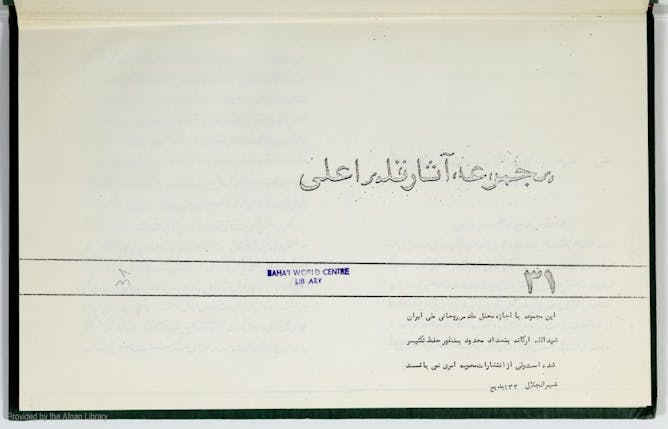 مجموعه آثار قلم اعلی
31
BAHA'I WORLD CENTRE
LIBRARY
۳۱
این مجموعه با اجازه محفل مقدس روحانی ملی ایران
شیدالله ارکانه بتعداد محدود بمنظور حفظ تکثیر
شده است ولی از انتشارات مصوبه امری نمی باشد
شهرالجلال ۱۳۳ بدیع
Provided by the Afnan Library